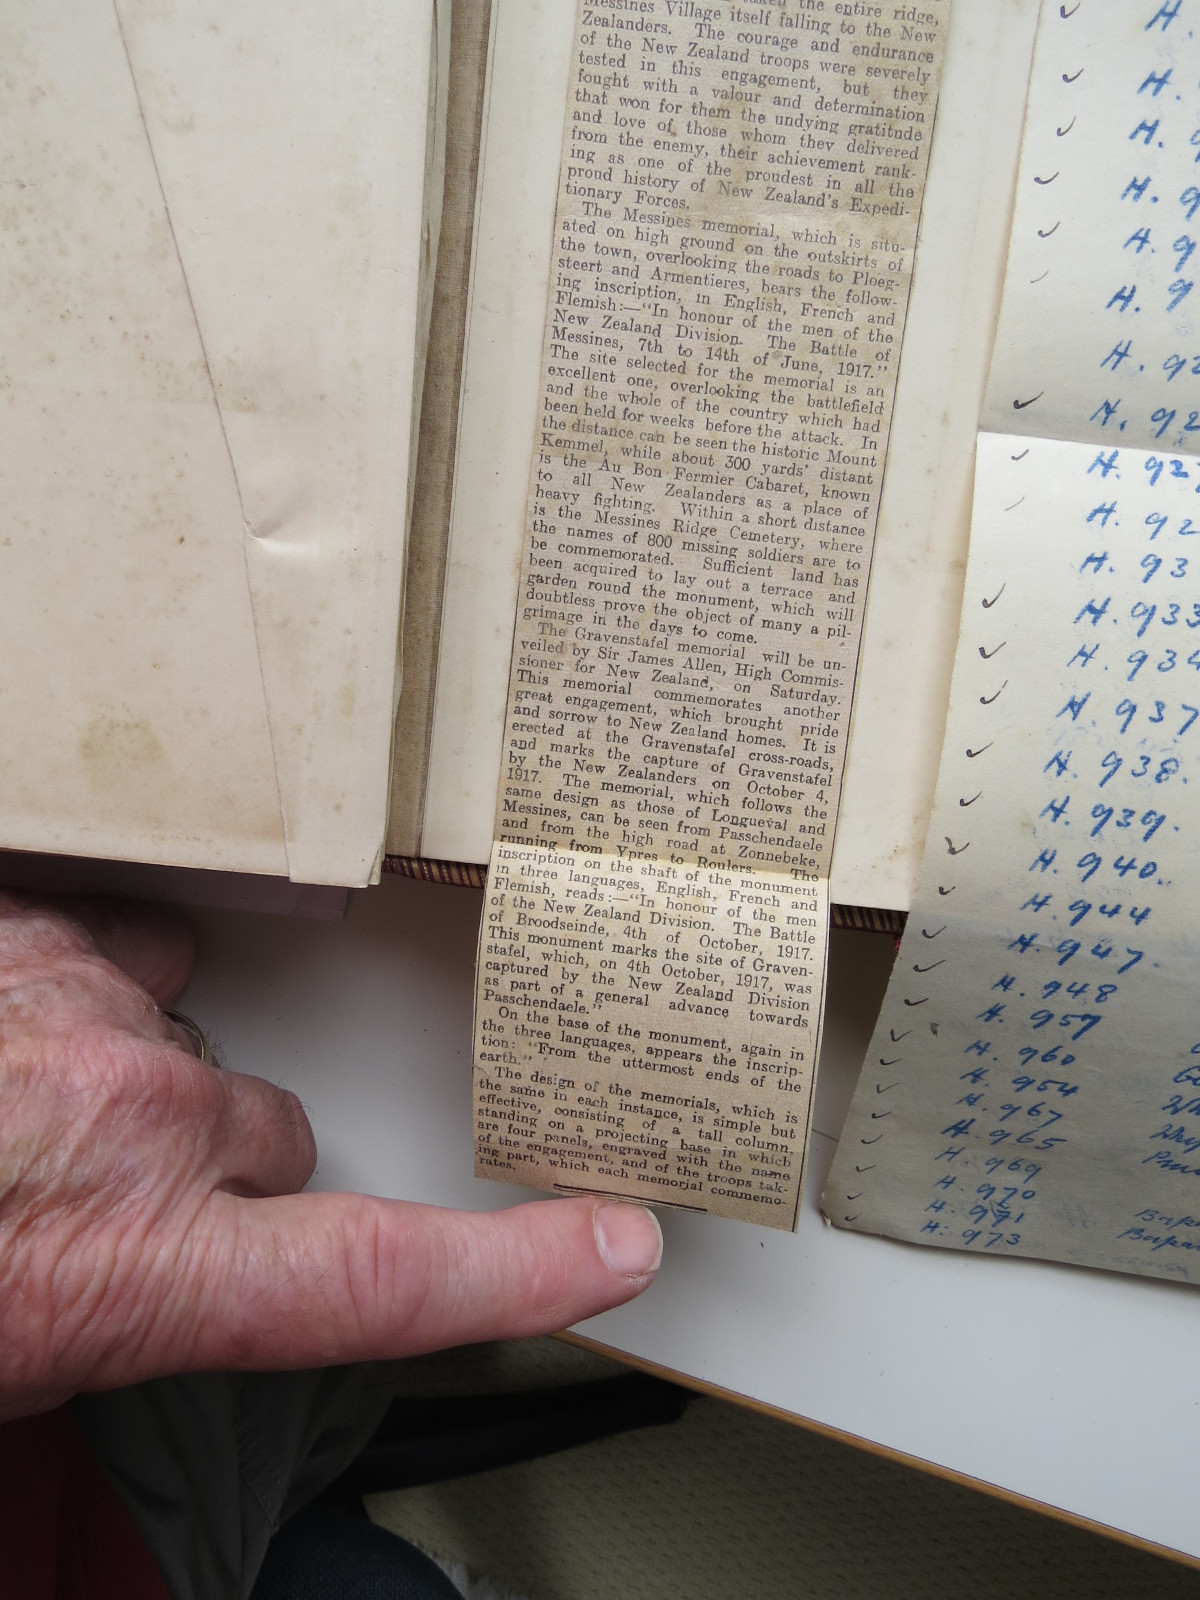 taken the entire ridge,
Messines Village itself falling to the New
Zealanders. The courage and endurance
of the New Zealand troops were severely
tested in this engagement, but they
fought with a valour and determination
that won for them the undying gratitude
and love of those whom they delivered
from the enemy, their achievement rank-
ing as one of the proudest in all the
proud history of New Zealand's Expedi-
tionary Forces.
The Messines memorial, which is situ-
ated on high ground on the outskirts of
the town, overlooking the roads to Ploeg-
steert and Armentieres, bears the follow-
ing inscription, in English, French and
Flemish:—"In honour of the men of the
New Zealand Division. The Battle of
Messines, 7th to 14th of June, 1917."
The site selected for the memorial is an
excellent one, overlooking the battlefield
and the whole of the country which had
been held for weeks before the attack. In
the distance can be seen the historic Mount
Kemmel, while about 300 yards' distant
is the Au Bon Fermier Cabaret, known
to all New Zealanders as a place of
heavy fighting. Within a short distance
is the Messines Ridge Cemetery, where
the names of 800 missing soldiers are to
be commemorated. Sufficient land has
been acquired to lay out a terrace and
garden round the monument, which will
doubtless prove the object of many a pil-
grimage in the days to come.
The Gravenstafel memorial will be un-
veiled by Sir James Allen, High Commis-
sioner for New Zealand, on Saturday.
This memorial commemorates another
great engagement, which brought pride
and sorrow to New Zealand homes. It is
erected at the Gravenstafel cross-roads,
and marks the capture of Gravenstafel
by the New Zealanders on October 4,
1917. The memorial, which follows the
same design as those of Longueval and
Messines, can be seen from Passchendaele
and from the high road at Zonnebeke,
running from Ypres to Roulers. The
inscription on the shaft of the monument
in three languages, English, French and
Flemish, reads:—"In honour of the men
of the New Zealand Division. The Battle
of Broodseinde, 4th of October, 1917.
This monument marks the site of Graven-
stafel, which, on 4th October, 1917, was
captured by the New Zealand Division
as part of a general advance towards
Passchendaele."
On the base of the monument, again in
the three languages, appears the inscrip-
tion: "From the uttermost ends of the
earth."
The design of the memorials, which is
the same in each instance, is simple but
effective, consisting of a tall column,
standing on a projecting base in which
are four panels, engraved with the name
of the engagement, and of the troops tak-
ing part, which each memorial commemo-
rates.
H.
H.
H. 9
H. 9
H. 9
H. 9
H. 92
H. 92
H. 927
H. 92
H. 93
H. 933
H. 934
H. 937
H. 938.
H. 939.
H. 940.
H. 944
H. 947.
H. 948
H. 957
H. 960
H. 954
H. 967
H. 965
H. 969
H. 970
H. 971
H. 973